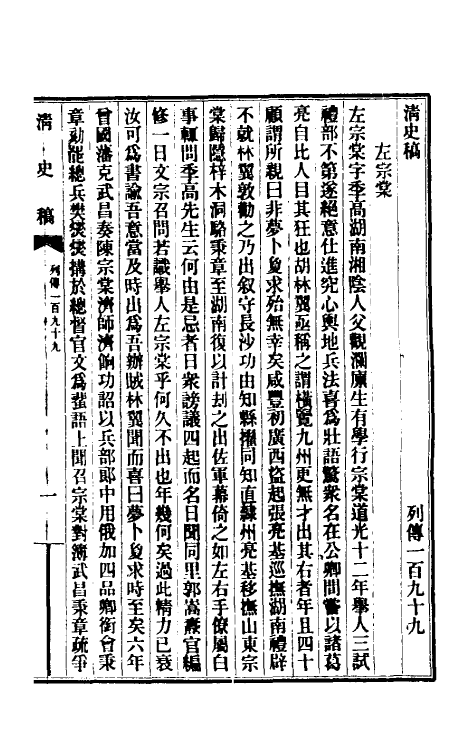 清史稿
列傳一百九十九
左宗棠
左宗棠字季高湖南湘陰人父觀瀾廩生有學行宗棠道光十二年舉人三試
禮部不第遂絕意仕進究心輿地兵法喜為壯語驚衆名在公卿間嘗以諸葛
亮自比人目其狂也胡林翼亟稱之謂橫覽九州更無才出其右者年且四十
顧謂所親曰非夢卜敻求殆無幸矣咸豐初廣西盜起張亮基巡撫湖南禮辟
不就林翼敦勸之乃出敘守長沙功由知縣擢同知直隸州亮基移撫山東宗
棠歸隱梓木洞駱秉章至湖南復以計劫之出佐軍幕倚之如左右手僚屬白
事輒問季高先生云何由是忌者日衆謗議四起而名日聞同里郭嵩燾官編
修一日文宗召問若識舉人左宗棠乎何久不出也年幾何矣過此精力已衰
汝可為書諭吾意當及時出為吾辦賊林翼聞而喜曰夢卜敻求時至矣六年
曾國藩克武昌奏陳宗棠濟師濟餉功詔以兵部郎中用俄加四品卿銜會秉
章劾罷總兵樊燮燮搆於總督官文為蜚語上聞召宗棠對簿武昌秉章疏爭
清史稿
列傳一百九十九
一